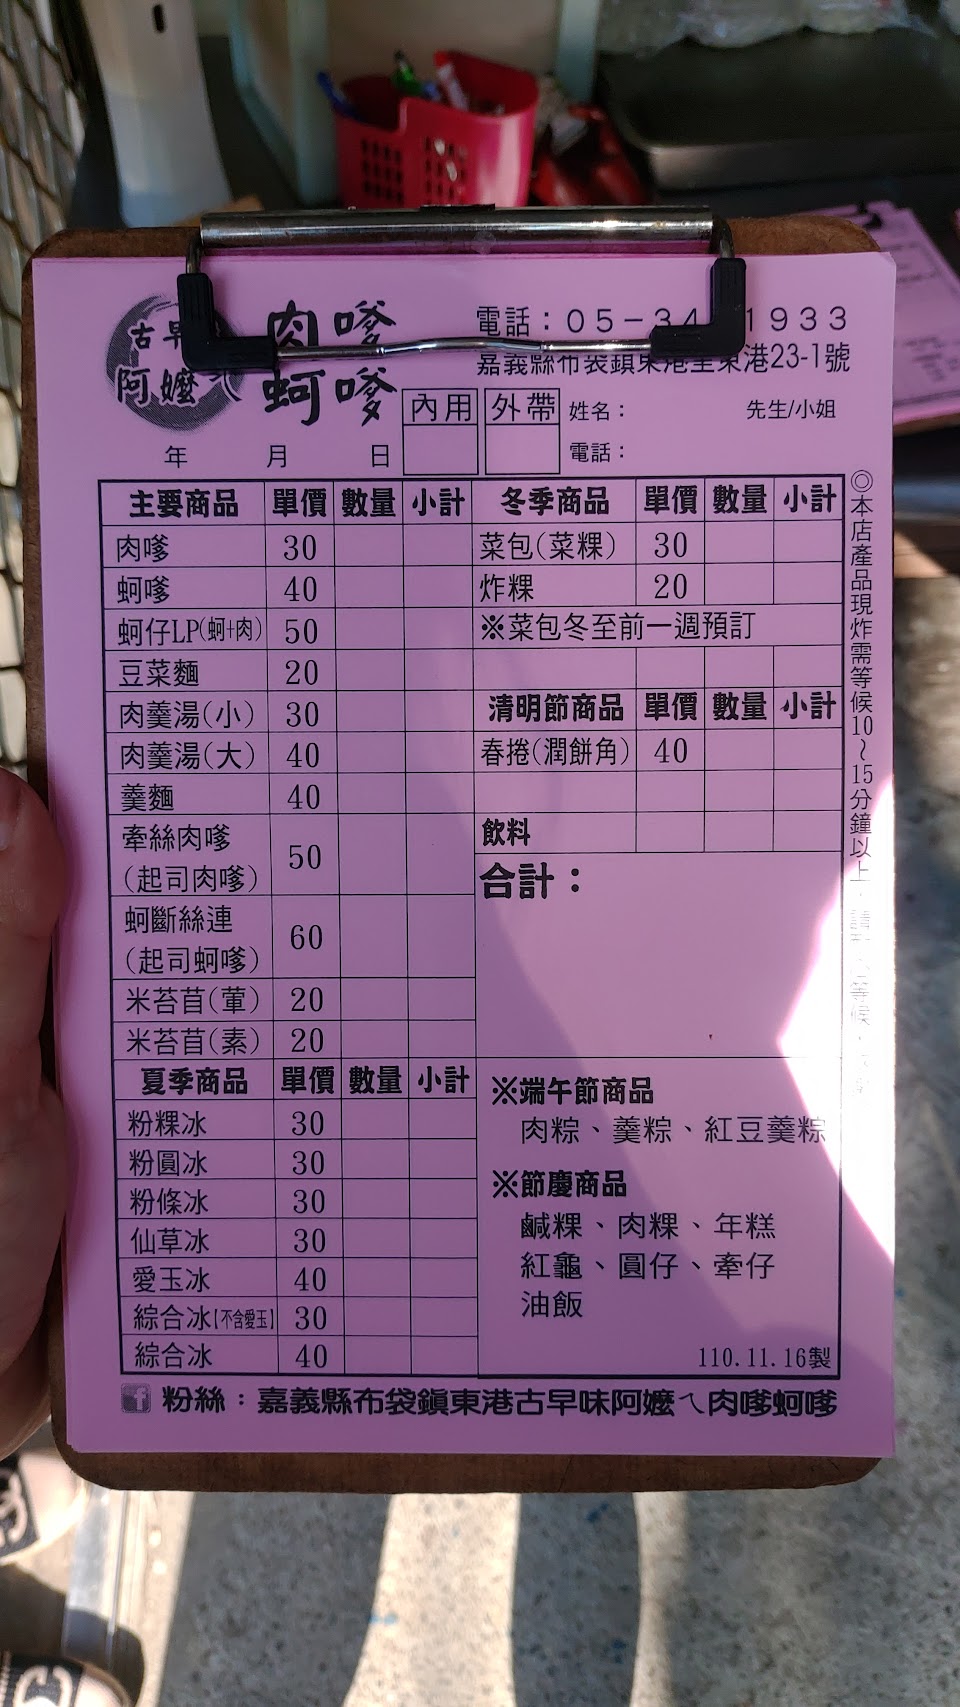 古早
阿嬤ㄟ
肉嗲
蚵嗲
電話：05-34 1933
嘉義縣布袋鎮東港里東港23-1號
內用 外帶 姓名： 先生/小姐
年 月 日 電話：
主要商品 單價 數量 小計
肉嗲 30
蚵嗲 40
蚵仔LP(蚵+肉) 50
豆菜麵 20
肉羹湯(小) 30
肉羹湯(大) 40
羹麵 40
牽絲肉嗲
(起司肉嗲) 50
蚵斷絲連
(起司蚵嗲) 60
米苔苜(葷) 20
米苔苜(素) 20
夏季商品 單價 數量 小計
粉粿冰 30
粉圓冰 30
粉條冰 30
仙草冰 30
愛玉冰 40
綜合冰【不含愛玉】 30
綜合冰 40
冬季商品 單價 數量 小計
菜包(菜粿) 30
炸粿 20
※菜包冬至前一週預訂
清明節商品 單價 數量 小計
春捲(潤餅角) 40
飲料
合計：
※端午節商品
肉粽、羹粽、紅豆羹粽
※節慶商品
鹹粿、肉粿、年糕
紅龜、圓仔、牽仔
油飯
110.11.16製
◎本店產品現炸需等候10~15分鐘以上，請 等候，
粉絲：嘉義縣布袋鎮東港古早味阿嬤ㄟ肉嗲蚵嗲